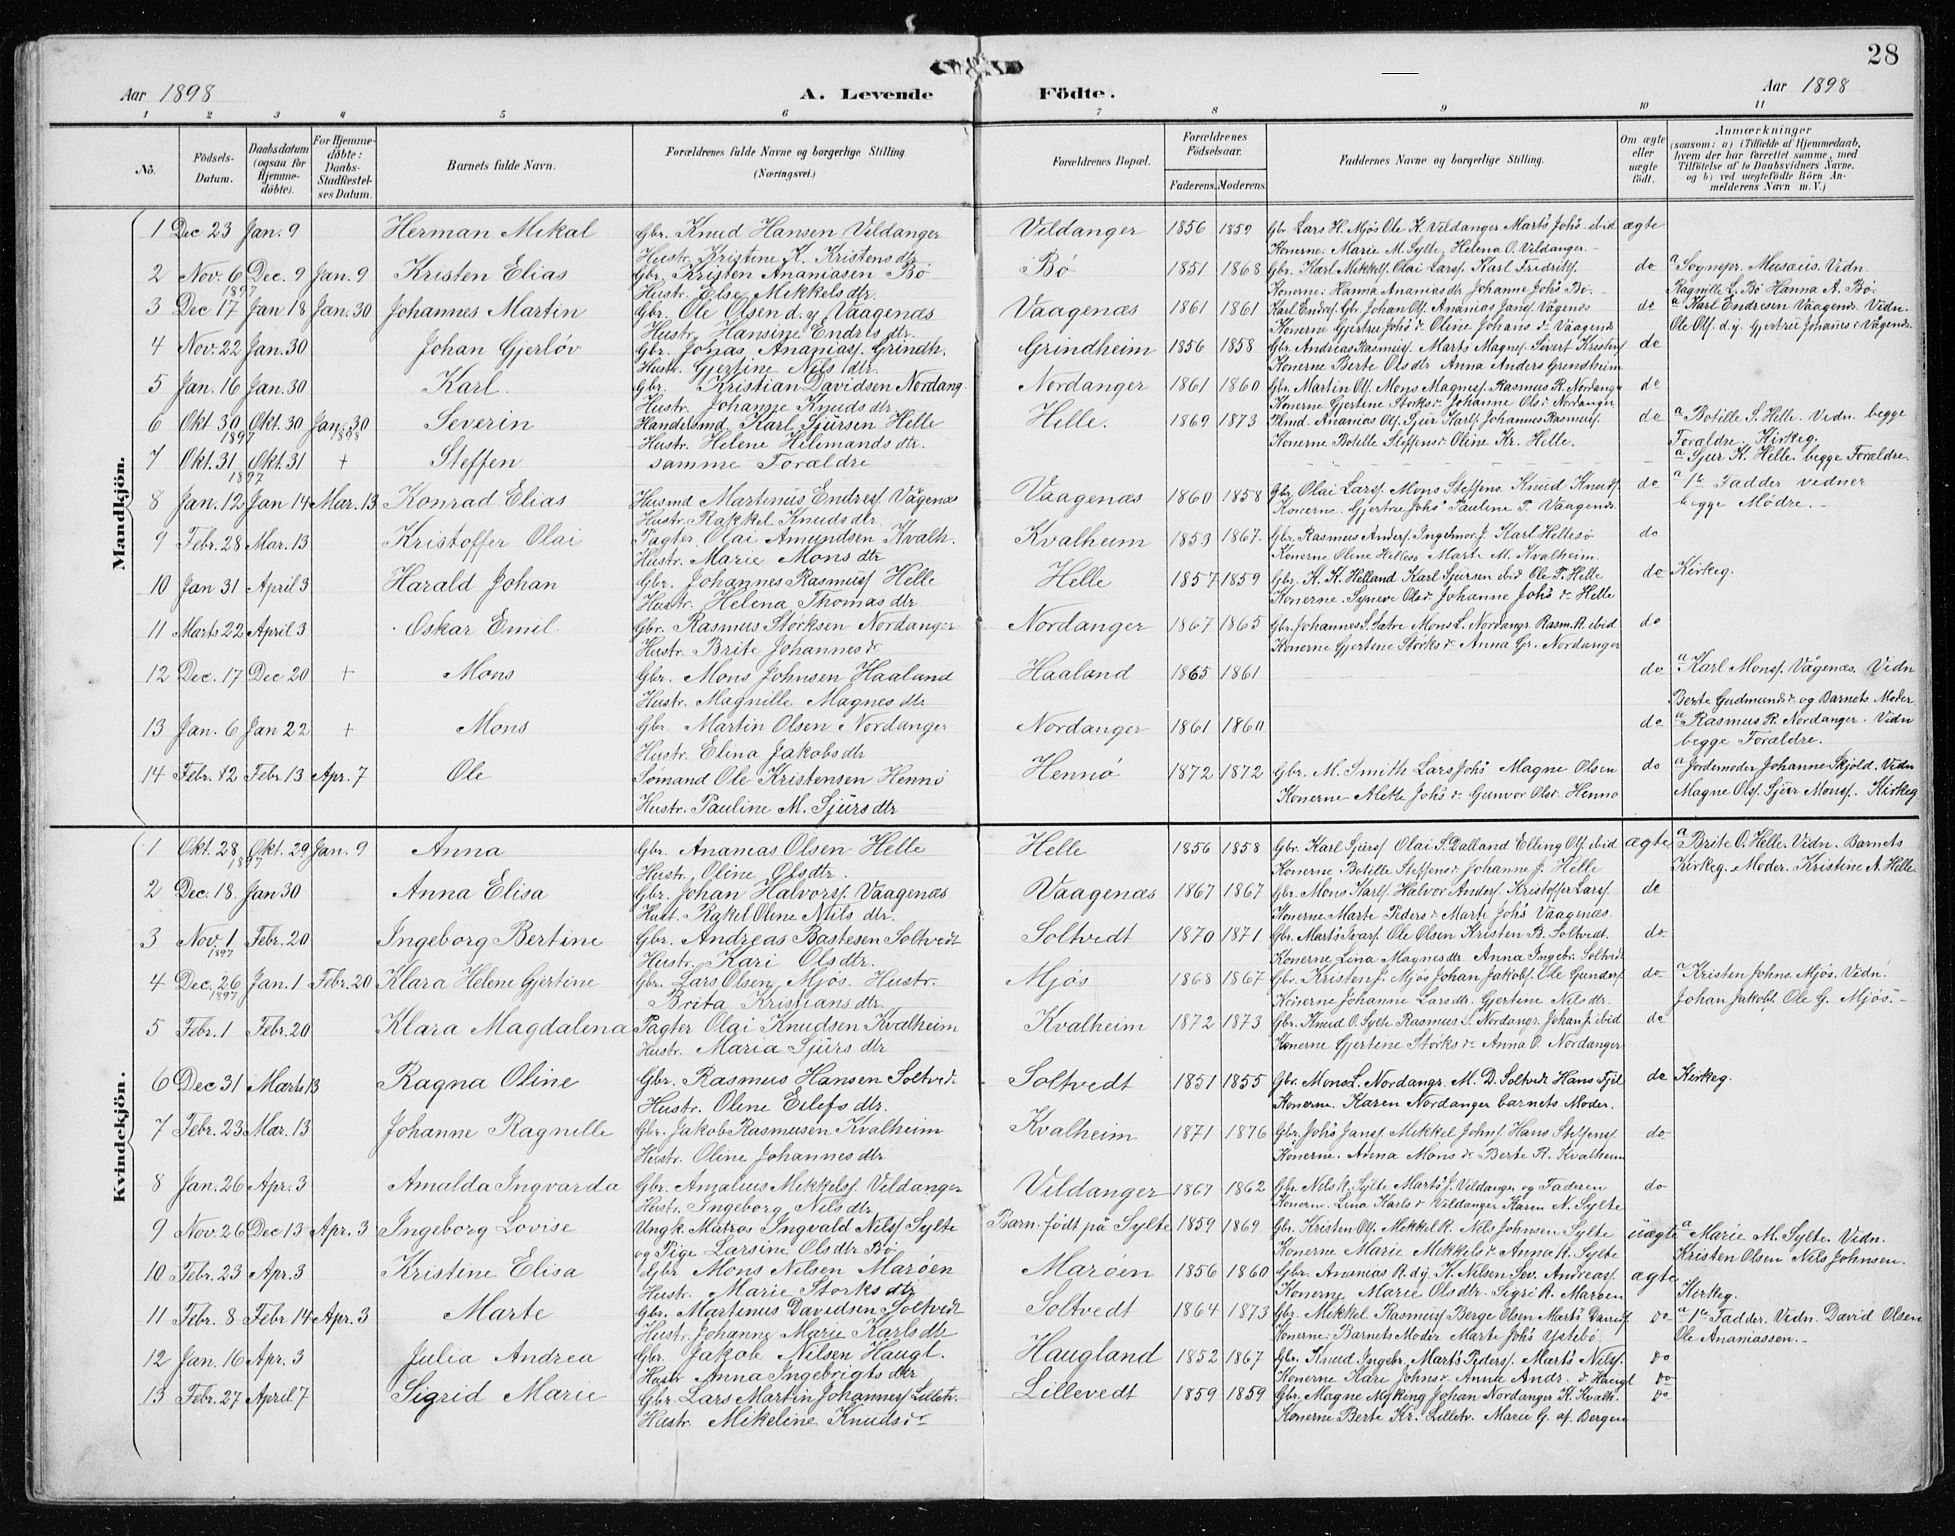 28
Aar 1898
A. Levende Fødte.
Aar 1898
1 2 3 4 5 6 7 8 9 10 11
No. Fødsels-Datum. Daabsdatum (ogsaa for Hjemmedøbte). For Hjemmedøbte: Daabs-Stadfæstelses Datum. Barnets fulde Navn. Forældrenes fulde Navne og borgerlige Stilling. (Næringsvei.) Forældrenes Bopæl. Forældrenes Fødselsaar. Faderens. Moderens. Faddernes Navne og borgerlige Stilling. Om ægte eller uægte født. Anmærkninger (saasom: a) i Tilfælde af Hjemmedaab, hvem der har forrettet samme, med Tilføielse af to Daabsvidners Navne. og b) ved uægtefødte Børn Anmelderens Navn m. V.)
Mandkjøn.
1 Dec 23 Jan. 9 Herman Mikal Gbr. Knud Hansen Vildanger Vildanger 1856 1859 Gbr Lars H. Mjøs Ole K. Vildanger Marts Johs ibid ægte
Hustr. Kristine K. Kristens dtr Konerne: Marie M. Sylte, Helena O. Vildanger.
2 Nov. 6 1897 Dec. 9 Jan. 9 Kristen Elias Gbr. Kristen Ananiasen Bø Bø 1851 1868 Gbr. Karl Mikkels. Olai Lars. Karl Fridriks. do a Sognepr. Musæus. Vidn.
Hustr. Else Mikkels dtr. Konerne: Hanna Ananias dtr Johanne Johs Bø. Ragnille L. Bø Hanna A. Bø.
3 Dec 17 Jan 18 Jan. 30 Johannes Martin Gbr. Ole Olsen d. y Vaagenæs Vaagenæs 1861 1861 Karl Endres. Gbr. Johan Ols. Ananias Jans. Vågenæs do a Karl Endresen Vaagenæs. Vidn.
Hustr. Hansine Endres dtr. Konerne Gjertru Johs dr Oline Johans dr Vaagenæs Ole Ols. d. y. Gjertru Johanes dr Vågenæs.
4 Nov. 22 Jan. 30 Johan Gjerløv Gbr. Jonas Ananias. Grindh. Grindheim 1856 1858 Gbr. Andreas Rasmus. Marts Magnes. Sivert Kristens. do
Hustr. Gjertine Nils dtr. Konerne Berte Ols dtr Anna Anders Grendheim
5 Jan. 16 Jan. 30 Karl. Gbr. Kristian Davidsen Nordang. Nordanger 1861 1860 Gbr. Martin Ols. Mons Magnes. Rasmus R. Nordange do
Hustr. Johanne Knuds dtr Konerne Gjertine Storks dr Johanne Ols dr Nordanger
6 Okt. 30 1897 Okt. 30 Jan. 30 1898 Severin Handelsmd Karl Sjursen Helle Helle. 1869 1873 Hmd Ananias Ols. Sjur Karls. Johannes Rasmus. do a Botille S. Helle. Vidn. begge
Hustr. Helene Hilemands dtr. Konerne Botille Steffens dr Oline Kr. Helle. Forældre. Kirkeg.
7 Okt. 31 1897 Okt. 31 + Steffen samme Forældre a Sjur K. Helle. begge Forældre.
8 Jan. 12 Jan 14 Mar. 13 Konrad Elias Husmd Martinus Endres. Vågenæs Vaagenæs 1860 1858 Gbr. Olai Lars. Mons Steffens. Knud Knuts. do a 1te Fadder vedner
Hustr. Rakkel Knuds dtr. Konerne. Gjertru Johs Pauline T. Vaagenæs. begge Mødre.
9 Febr. 28 Mar. 13 Kristoffer Olai Pagter Olai Amundsen Kvalh. Kvalheim 1853 1867. Gbr. Rasmus Anders. Ingelmor J. Karl Hellesø do
Hustr. Marie Mons dtr Konerne Oline Hellesø Marte M. Kvalheim.
10 Jan 31 April 3 Harald Johan Gbr. Johannes Rasmus. Helle Helle 1857 1859 Gbr. K. K. Helland Karl Sjursen ibid Ole T. Helle do Kirkeg.
Hustr. Helena Thomas dtr Konerne. Syneve Ols dr Johanne Johs dr Helle
11 Marts 22 April 3 Oskar Emil Gbr. Rasmus Størksen Nordanger Nordanger 1867 1865 Gbr. Johannes S. Sætre Mons L. Nordangr. Rasm. R. ibid do
Hustr. Brite Johannes dr Konerne Gjertine Størks dr Anna Gr. Nordanger
12 Dec. 17 Dec 20 + Mons Gbr. Mons Johnsen Haaland Haaland 1865 1861 do a Karl Mons. Vågenæs. Vidn
Hustr. Magnille Magnes dtr Berte Gudmunds dr og Barnets Moder
13 Jan. 6 Jan 22 + Mons Gbr. Martin Olsen Nordanger Nordanger 1861 1860 do a Rasmus R. Nordanger. Vidn
Hustr. Elina Jakobs dtr begge Forældre.
14 Febr. 12 Febr 13 Apr. 7 Ole Sømand Ole Kristensen Hennø Hennø 1872 1872 Gbr. M. Smith Lars Johs Magne Olsen do a Jordemoder Johanne Skjold. Vidn
Hustr. Pauline M. Sjurs dtr Konerne Alette Johs dr Gunvor Ols dr Hennø Magne Ols. Sjur Mons. Kirkeg
Kvindekjøn.
1 Okt. 28 1897 Okt. 29 Jan. 9 Anna Gbr. Ananias Olsen Helle Helle 1856 1858 Gbr. Karl Sjurs. Olai S. Dalland Elling Ols. ibid ægte a Brite O. Helle. Vidn. Barnets
Hustr. Oline Ols dtr. Konerne Botille Steffens dr Johanne J. Helle Kirkeg. Moder. Kristine A. Helle.
2 Dec. 18. Jan 30 Anna Elisa Gbr. Johan Halvors. Vaagenæs Vaagenæs 1867 1867 Gbr. Mons Karls. Halvor Anders. Kristoffer Lars. do
Hust. Rakel Oline Nils dtr. Konerne Marte Peders dr Marte Johs Vaagenæs.
3 Nov. 1 1897 Febr. 20 Ingeborg Bertine Gbr. Andreas Bastesen Soltvedt Soltvedt 1870 1871 Gbr. Marts Ivars. Ole Olsen Kristen B. Soltvedt. do
Hustr. Kari Ols dtr. Konerne Lina Magnes dtr. Anna Ingebr. Soltvedt
4 Dec. 26 1897 Jan. 1 Febr. 20 Klara Helene Gjertine Gbr. Lars Olsen Mjøs. Hustr. Mjøs 1868 1867 Gbr. Kristen J. Mjøs Johan Jakobs. Ole Gunders. do a Kristen Johns. Mjøs. Vidn.
Brita Kristians dtr. Konerne Johanne Lars dtr. Gjertine Nils dtr. Johan Jakobs. Ole G. Mjøs.
5 Febr. 1 Febr. 20 Klara Magdalena Pagter Olai Knudsen Kvalheim Kvalheim 1872 1873 Gbr. Knud O. Sylte Rasmus S. Nordangr. Johan J. ibid do
Hustr. Maria Sjurs dtr Konerne Gjertine Størks dr Anna O. Nordanger
6 Dec 31 Marts 13 Ragna Oline Gbr. Rasmus Hansen Soltvedt Soltvedt 1851 1855 Gbr. Mons L. Nordangr. M. D. Soltvedt Hans Fjel do Kirkeg.
Hustr. Oline Eilefs dtr. Konerne. Karen Nordanger barnets Moder.
7 Febr. 23 Mar. 13 Johanne Ragnille Gbr. Jakob Rasmusen Kvalheim Kvalheim 1871 1876 Gbr. Johs Jans. Mikkel Johns. Hans Steffens. do
Hustr. Oline Johannes dtr Konerne. Anna Mons dr Berte R. Kvalheim
8 Jan. 26 Apr. 3 Amulda Ingvarda Gbr. Amalius Mikkels. Vildanger Vildanger 1867 1862 Gbr. Nils K. Sylte Marts J. Vildanger og Faderen do
Hustr. Ingeborg Nils dtr Konerne. Lina Karls dr Vildanger Karen N. Sylte
9 Nov. 26 Dec 13 Apr. 3 Ingeborg Lovise Ungk. Matros Ingvald Nils. Sylte Barn. født på Sylte 1859 1869 Gbr. Kristen Ols. Mikkel R. Nils Johnsen Sylte üægte a Marie M. Sylte. Vidn.
og Pige Larsine Ols dtr Bø Konerne Marie Mikkels dr Anna K. Sylte Kristen Olsen Nils Johnsen.
10 Febr. 23 Apr. 3 Kristine Elisa Gbr Mons Nilsen Marøen Marøen 1856 1860 Gbr. Ananias R. d.y. K. Nilsen Sev. Andreas. ægte
Hustr. Marie Storks dtr Konerne Marie Ols dtr. Sigri R. Marøen Kirkeg.
11 Febr. 8 Febr 14 Apr. 3 Marte Gbr. Martinus Davidsen Soltvedt Soltvedt 1864 1873 Gbr. Mikkel Rasmus. Berge Olsen Marts Davids. do a 1te Fadder. Vidn. David Olsen
Hustr. Johanne Marie Karls dtr Konerne. Barnets Moder Marte Johs Ystebø Ole Ananiassen.
12 Jan. 16 Apr. 3 Julia Andrea Gbr. Jakob Nilsen Haugl. Haugland 1852 1867 Gbr. Knud Ingebr. Marts Peders. Marts Nils. do
Hustr Anna Ingebrigts dtr Konerne Kari Johns dr Anna Andr. dr Haugl do
13 Febr. 27 April 7 Sigrid Marie Gbr. Lars Martin Johannes. Lilletv. Lillevedt 1859 1859 Gbr. Magne Myking Johan Nordanger K. Kvalh. do
Hustr. Mikeline Knuds dr Konerne Berte Kr. Lilletv. Marie G. af Bergen